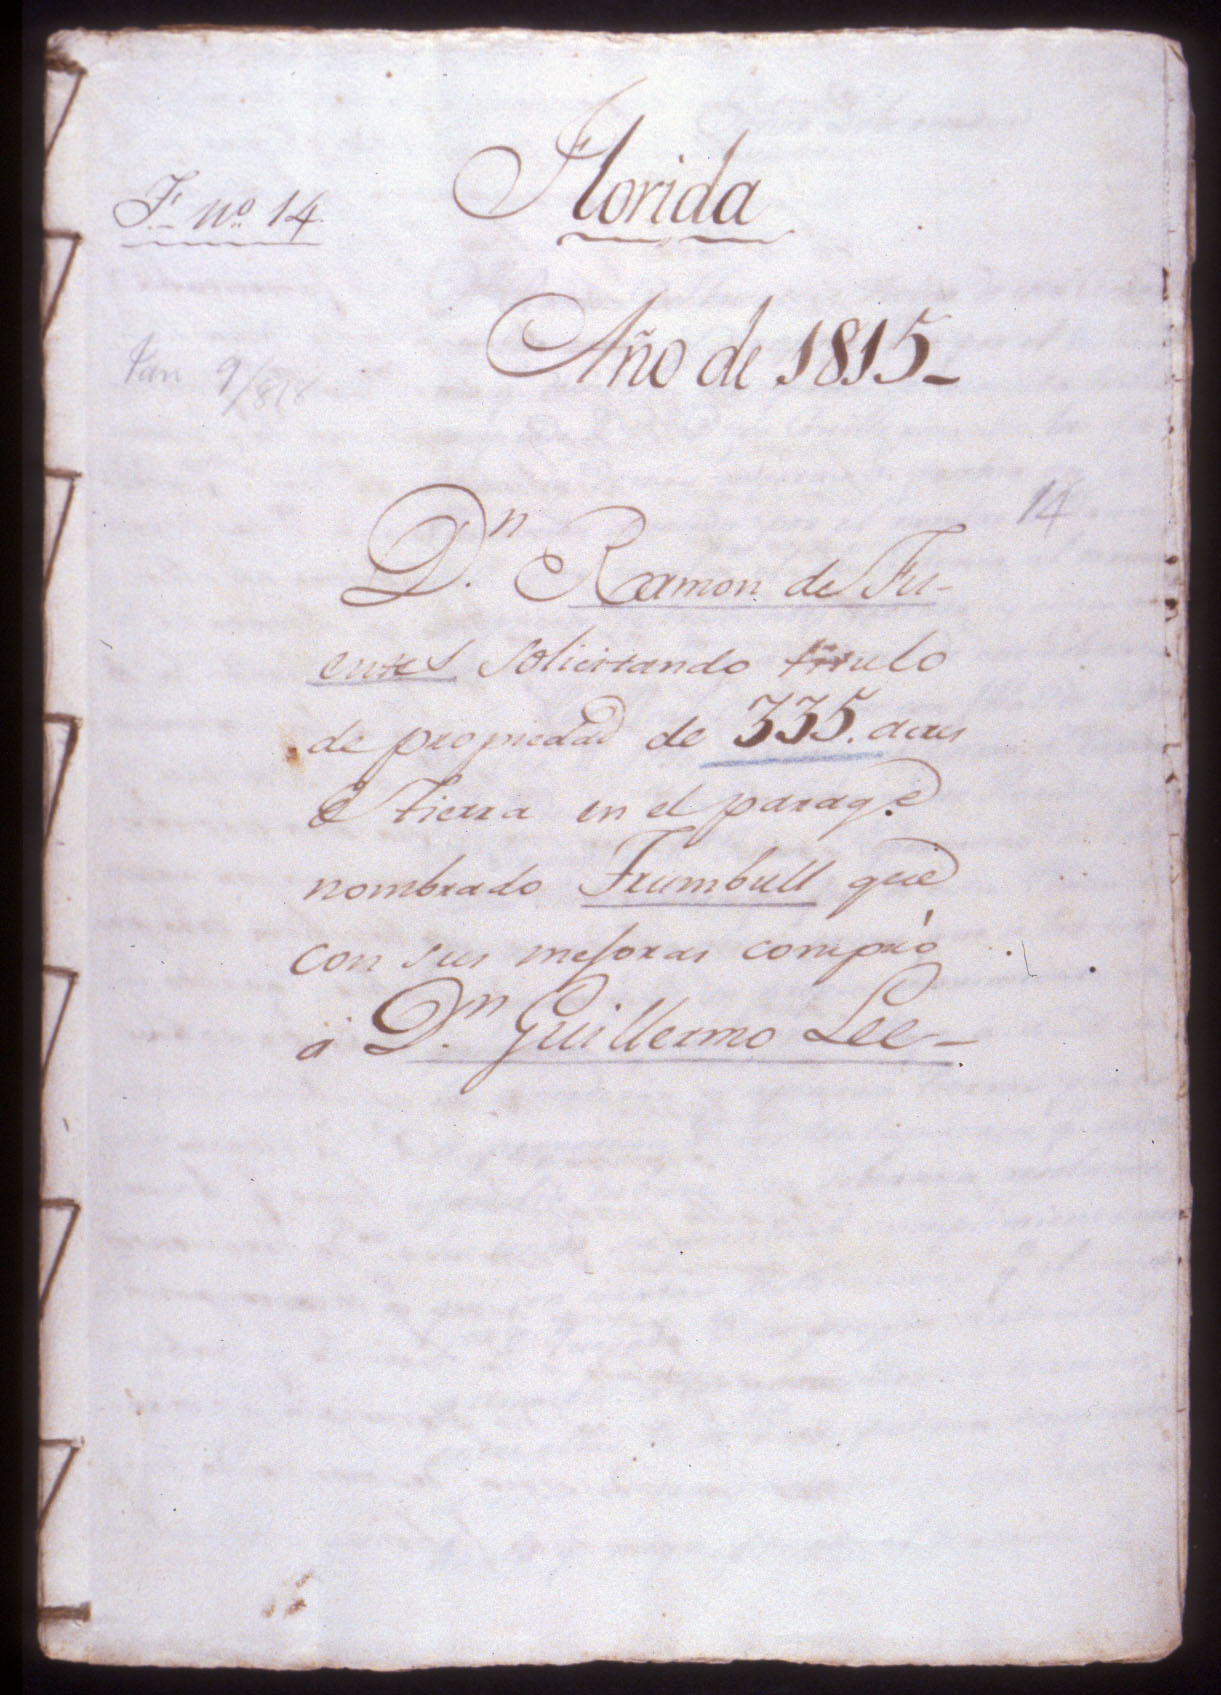 Florida
F. nº 14.
Año de 1815-
Jan 9/818
14
Dn. Ramon de Fu-
entes solicitando titulo
de propiedad de 335. acres
de tierra en el parage
nombrado Trumbull que
con sus mejoras compró
á Dn. Guillermo Lee-